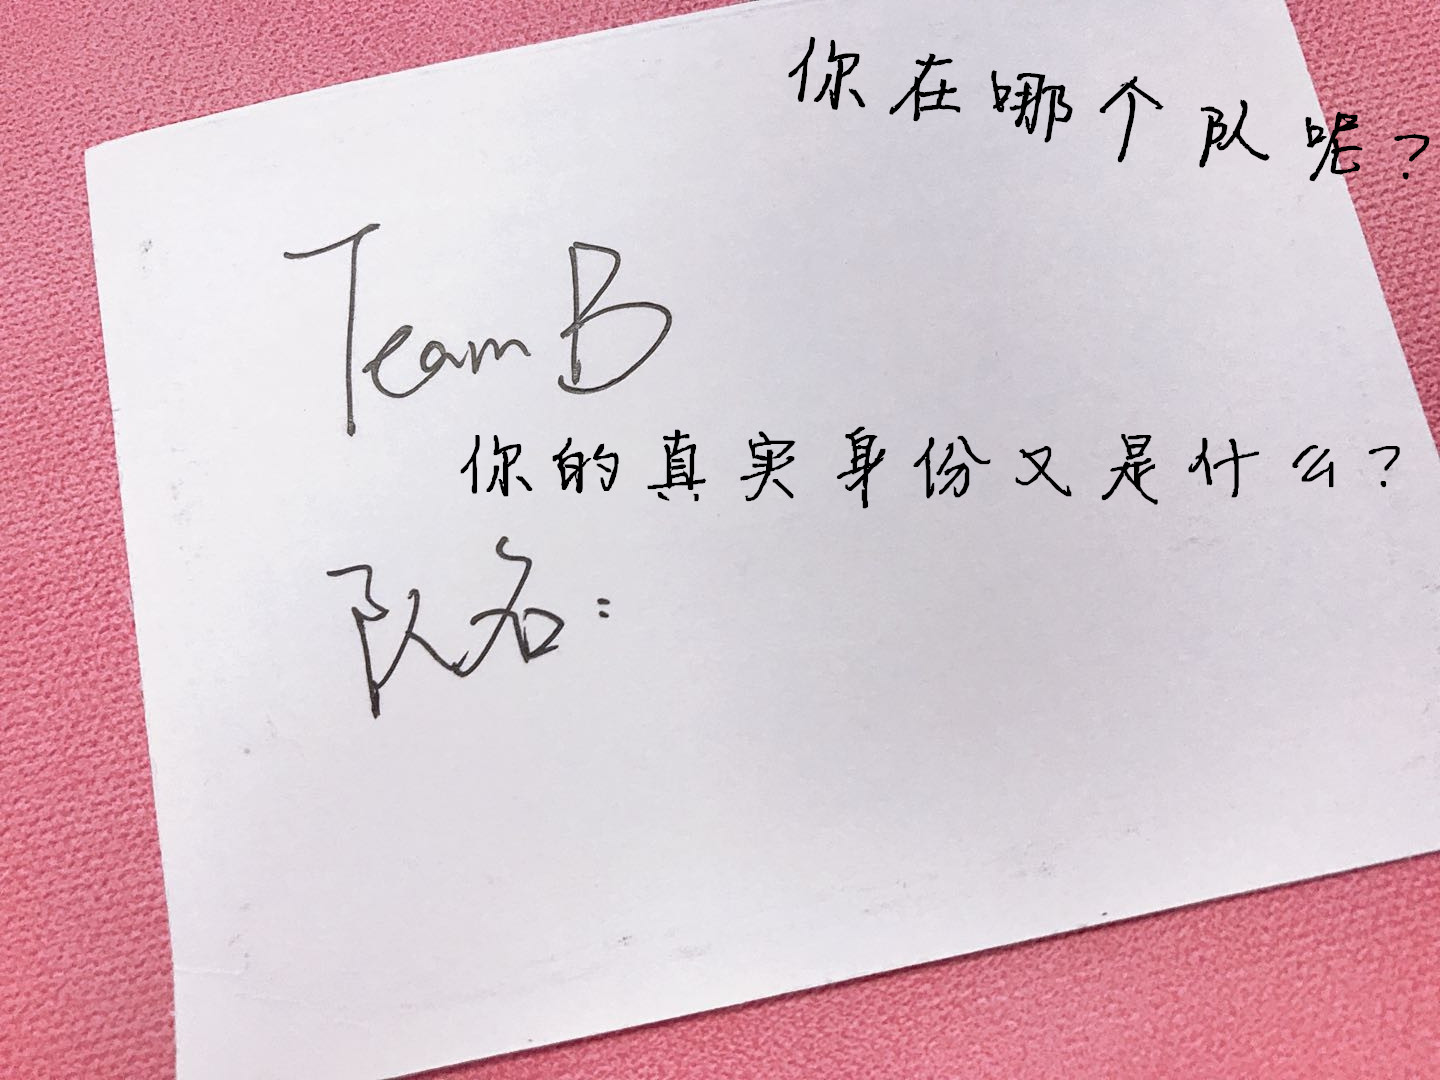 你在哪个队呢?
Team B
你的真实身份又是什么?
队名: